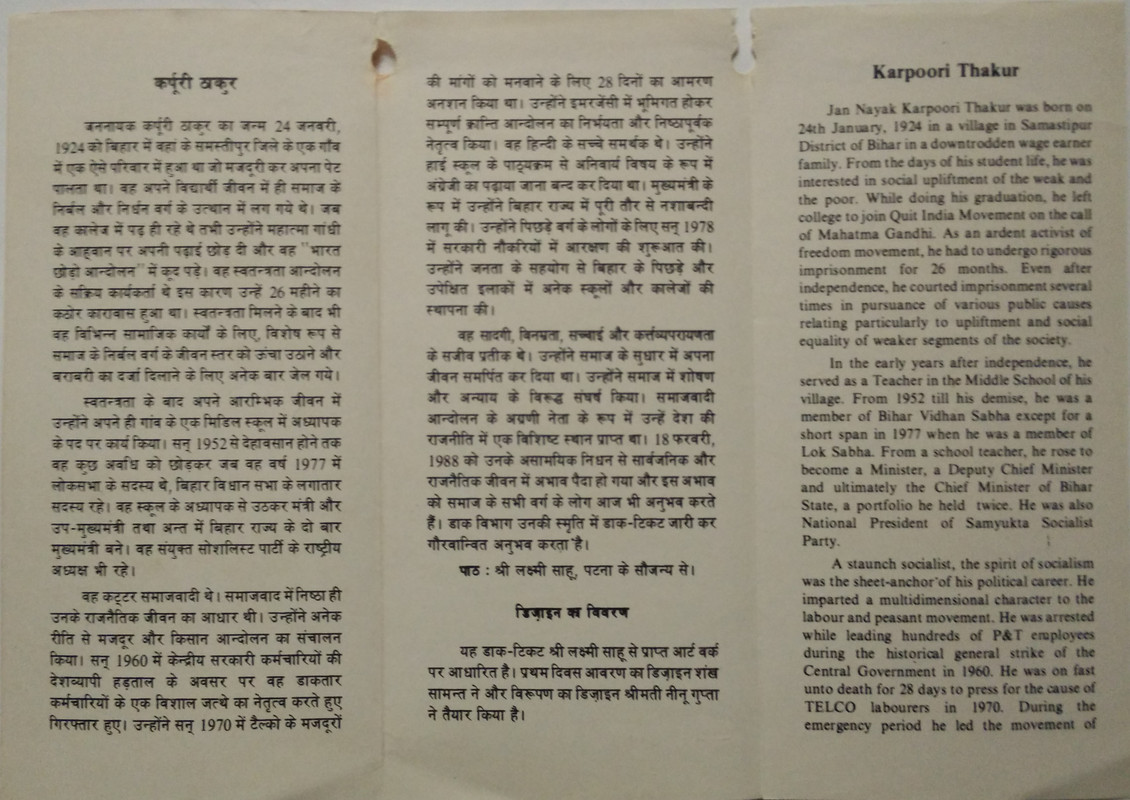 कर्पूरी ठाकुर
जननायक कर्पूरी ठाकुर का जन्म 24 जनवरी,
1924 को बिहार में वहां के समस्तीपुर जिले के एक गाँव
में एक ऐसे परिवार में हुआ था जो मजदूरी कर अपना पेट
पालता था। वह अपने विद्यार्थी जीवन में ही समाज के
निर्बल और निर्धन वर्ग के उत्थान में लग गये थे। जब
वह कालेज में पढ़ ही रहे थे तभी उन्होंने महात्मा गांधी
के आह्वान पर अपनी पढ़ाई छोड़ दी और वह "भारत
छोड़ो आन्दोलन" में कूद पड़े। वह स्वतन्त्रता आन्दोलन
के सक्रिय कार्यकर्ता थे इस कारण उन्हें 26 महीने का
कठोर कारावास हुआ था। स्वतन्त्रता मिलने के बाद भी
वह विभिन्न सामाजिक कार्यों के लिए, विशेष रूप से
समाज के निर्बल वर्ग के जीवन स्तर को ऊंचा उठाने और
बराबरी का दर्जा दिलाने के लिए अनेक बार जेल गये।
स्वतन्त्रता के बाद अपने आरम्भिक जीवन में
उन्होंने अपने ही गांव के एक मिडिल स्कूल में अध्यापक
के पद पर कार्य किया। सन् 1952 से देहावसान होने तक
वह कुछ अवधि को छोड़कर जब वह वर्ष 1977 में
लोकसभा के सदस्य थे, बिहार विधान सभा के लगातार
सदस्य रहे। वह स्कूल के अध्यापक से उठकर मंत्री और
उप-मुख्यमंत्री तथा अन्त में बिहार राज्य के दो बार
मुख्यमंत्री बने। वह संयुक्त सोशलिस्ट पार्टी के राष्ट्रीय
अध्यक्ष भी रहे।
वह कट्टर समाजवादी थे। समाजवाद में निष्ठा ही
उनके राजनैतिक जीवन का आधार थी। उन्होंने अनेक
रीति से मजदूर और किसान आन्दोलन का संचालन
किया। सन् 1960 में केन्द्रीय सरकारी कर्मचारियों की
देशव्यापी हड़ताल के अवसर पर वह डाकतार
कर्मचारियों के एक विशाल जत्थे का नेतृत्व करते हुए
गिरफ्तार हुए। उन्होंने सन् 1970 में टैल्को के मजदूरों
की मांगों को मनवाने के लिए 28 दिनों का आमरण
अनशन किया था। उन्होंने इमरजेंसी में भूमिगत होकर
सम्पूर्ण क्रान्ति आन्दोलन का निर्भयता और निष्ठापूर्वक
नेतृत्व किया। वह हिन्दी के सच्चे समर्थक थे। उन्होंने
हाई स्कूल के पाठ्यक्रम से अनिवार्य विषय के रूप में
अंग्रेजी का पढ़ाया जाना बन्द कर दिया था। मुख्यमंत्री के
रूप में उन्होंने बिहार राज्य में पूरी तौर से नशाबन्दी
लागू की। उन्होंने पिछड़े वर्ग के लोगों के लिए सन् 1978
में सरकारी नौकरियों में आरक्षण की शुरूआत की।
उन्होंने जनता के सहयोग से बिहार के पिछड़े और
उपेक्षित इलाकों में अनेक स्कूलों और कालेजों की
स्थापना की।
वह सादगी, विनम्रता, सच्चाई और कर्त्तव्यपरायणता
के सजीव प्रतीक थे। उन्होंने समाज के सुधार में अपना
जीवन समर्पित कर दिया था। उन्होंने समाज में शोषण
और अन्याय के विरूद्ध संघर्ष किया। समाजवादी
आन्दोलन के अग्रणी नेता के रूप में उन्हें देश की
राजनीति में एक विशिष्ट स्थान प्राप्त था। 18 फरवरी,
1988 को उनके असामयिक निधन से सार्वजनिक और
राजनैतिक जीवन में अभाव पैदा हो गया और इस अभाव
को समाज के सभी वर्ग के लोग आज भी अनुभव करते
हैं। डाक विभाग उनकी स्मृति में डाक-टिकट जारी कर
गौरवान्वित अनुभव करता है।
पाठ : श्री लक्ष्मी साहू, पटना के सौजन्य से।
डिज़ाइन का विवरण
यह डाक-टिकट श्री लक्ष्मी साहू से प्राप्त आर्ट वर्क
पर आधारित है। प्रथम दिवस आवरण का डिज़ाइन शंख
सामन्त ने और विरूपण का डिज़ाइन श्रीमती नीनू गुप्ता
ने तैयार किया है।
Karpoori Thakur
Jan Nayak Karpoori Thakur was born on
24th January, 1924 in a village in Samastipur
District of Bihar in a downtrodden wage earner
family. From the days of his student life, he was
interested in social upliftment of the weak and
the poor. While doing his graduation, he left
college to join Quit India Movement on the call
of Mahatma Gandhi. As an ardent activist of
freedom movement, he had to undergo rigorous
imprisonment for 26 months. Even after
independence, he courted imprisonment several
times in pursuance of various public causes
relating particularly to upliftment and social
equality of weaker segments of the society.
In the early years after independence, he
served as a Teacher in the Middle School of his
village. From 1952 till his demise, he was a
member of Bihar Vidhan Sabha except for a
short span in 1977 when he was a member of
Lok Sabha. From a school teacher, he rose to
become a Minister, a Deputy Chief Minister
and ultimately the Chief Minister of Bihar
State, a portfolio he held twice. He was also
National President of Samyukta Socialist
Party.
A staunch socialist, the spirit of socialism
was the sheet-anchor of his political career. He
imparted a multidimensional character to the
labour and peasant movement. He was arrested
while leading hundreds of P&T employees
during the historical general strike of the
Central Government in 1960. He was on fast
unto death for 28 days to press for the cause of
TELCO labourers in 1970. During the
emergency period he led the movement of